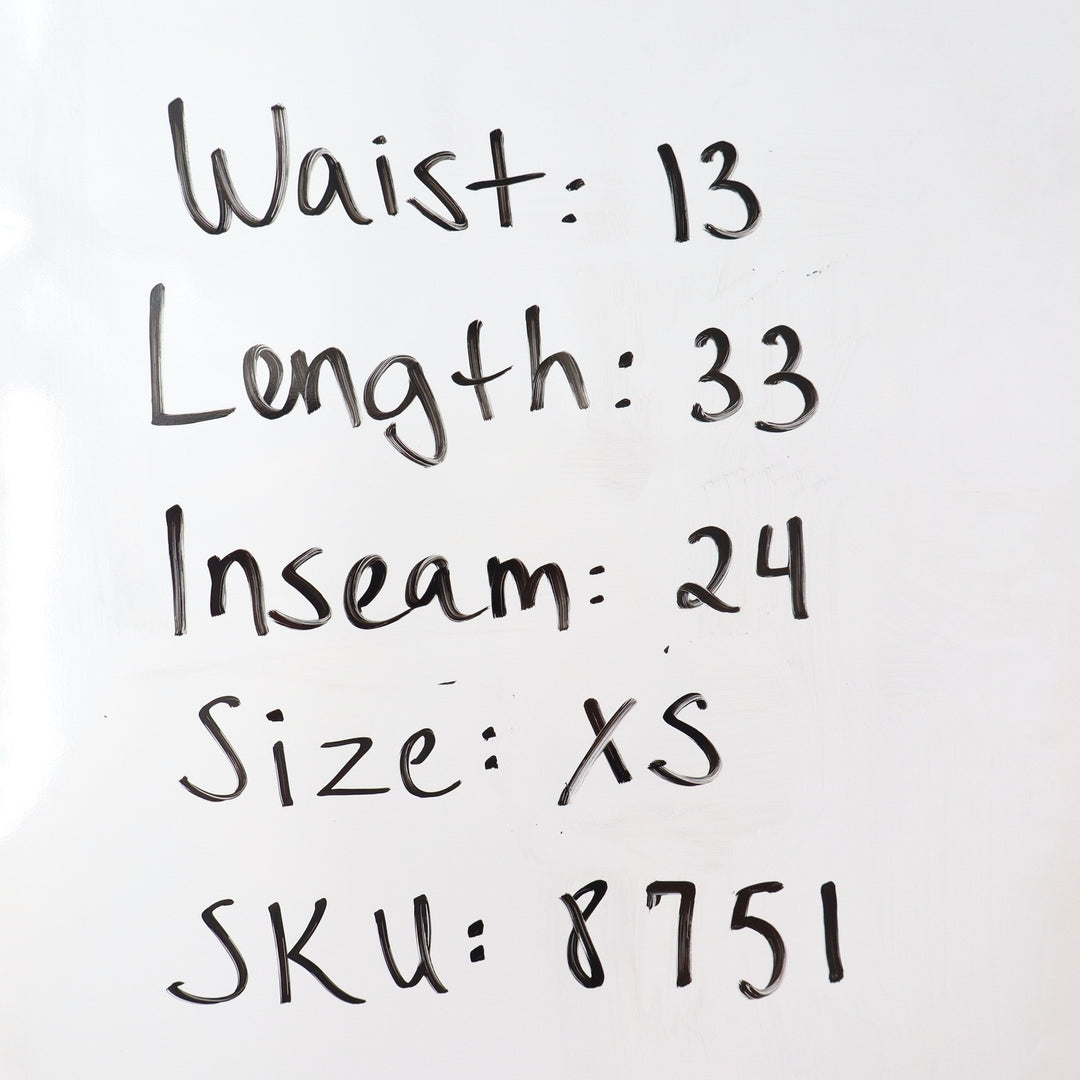 Waist: 13
Length: 33
Inseam: 24
Size: XS
SKU: 8751